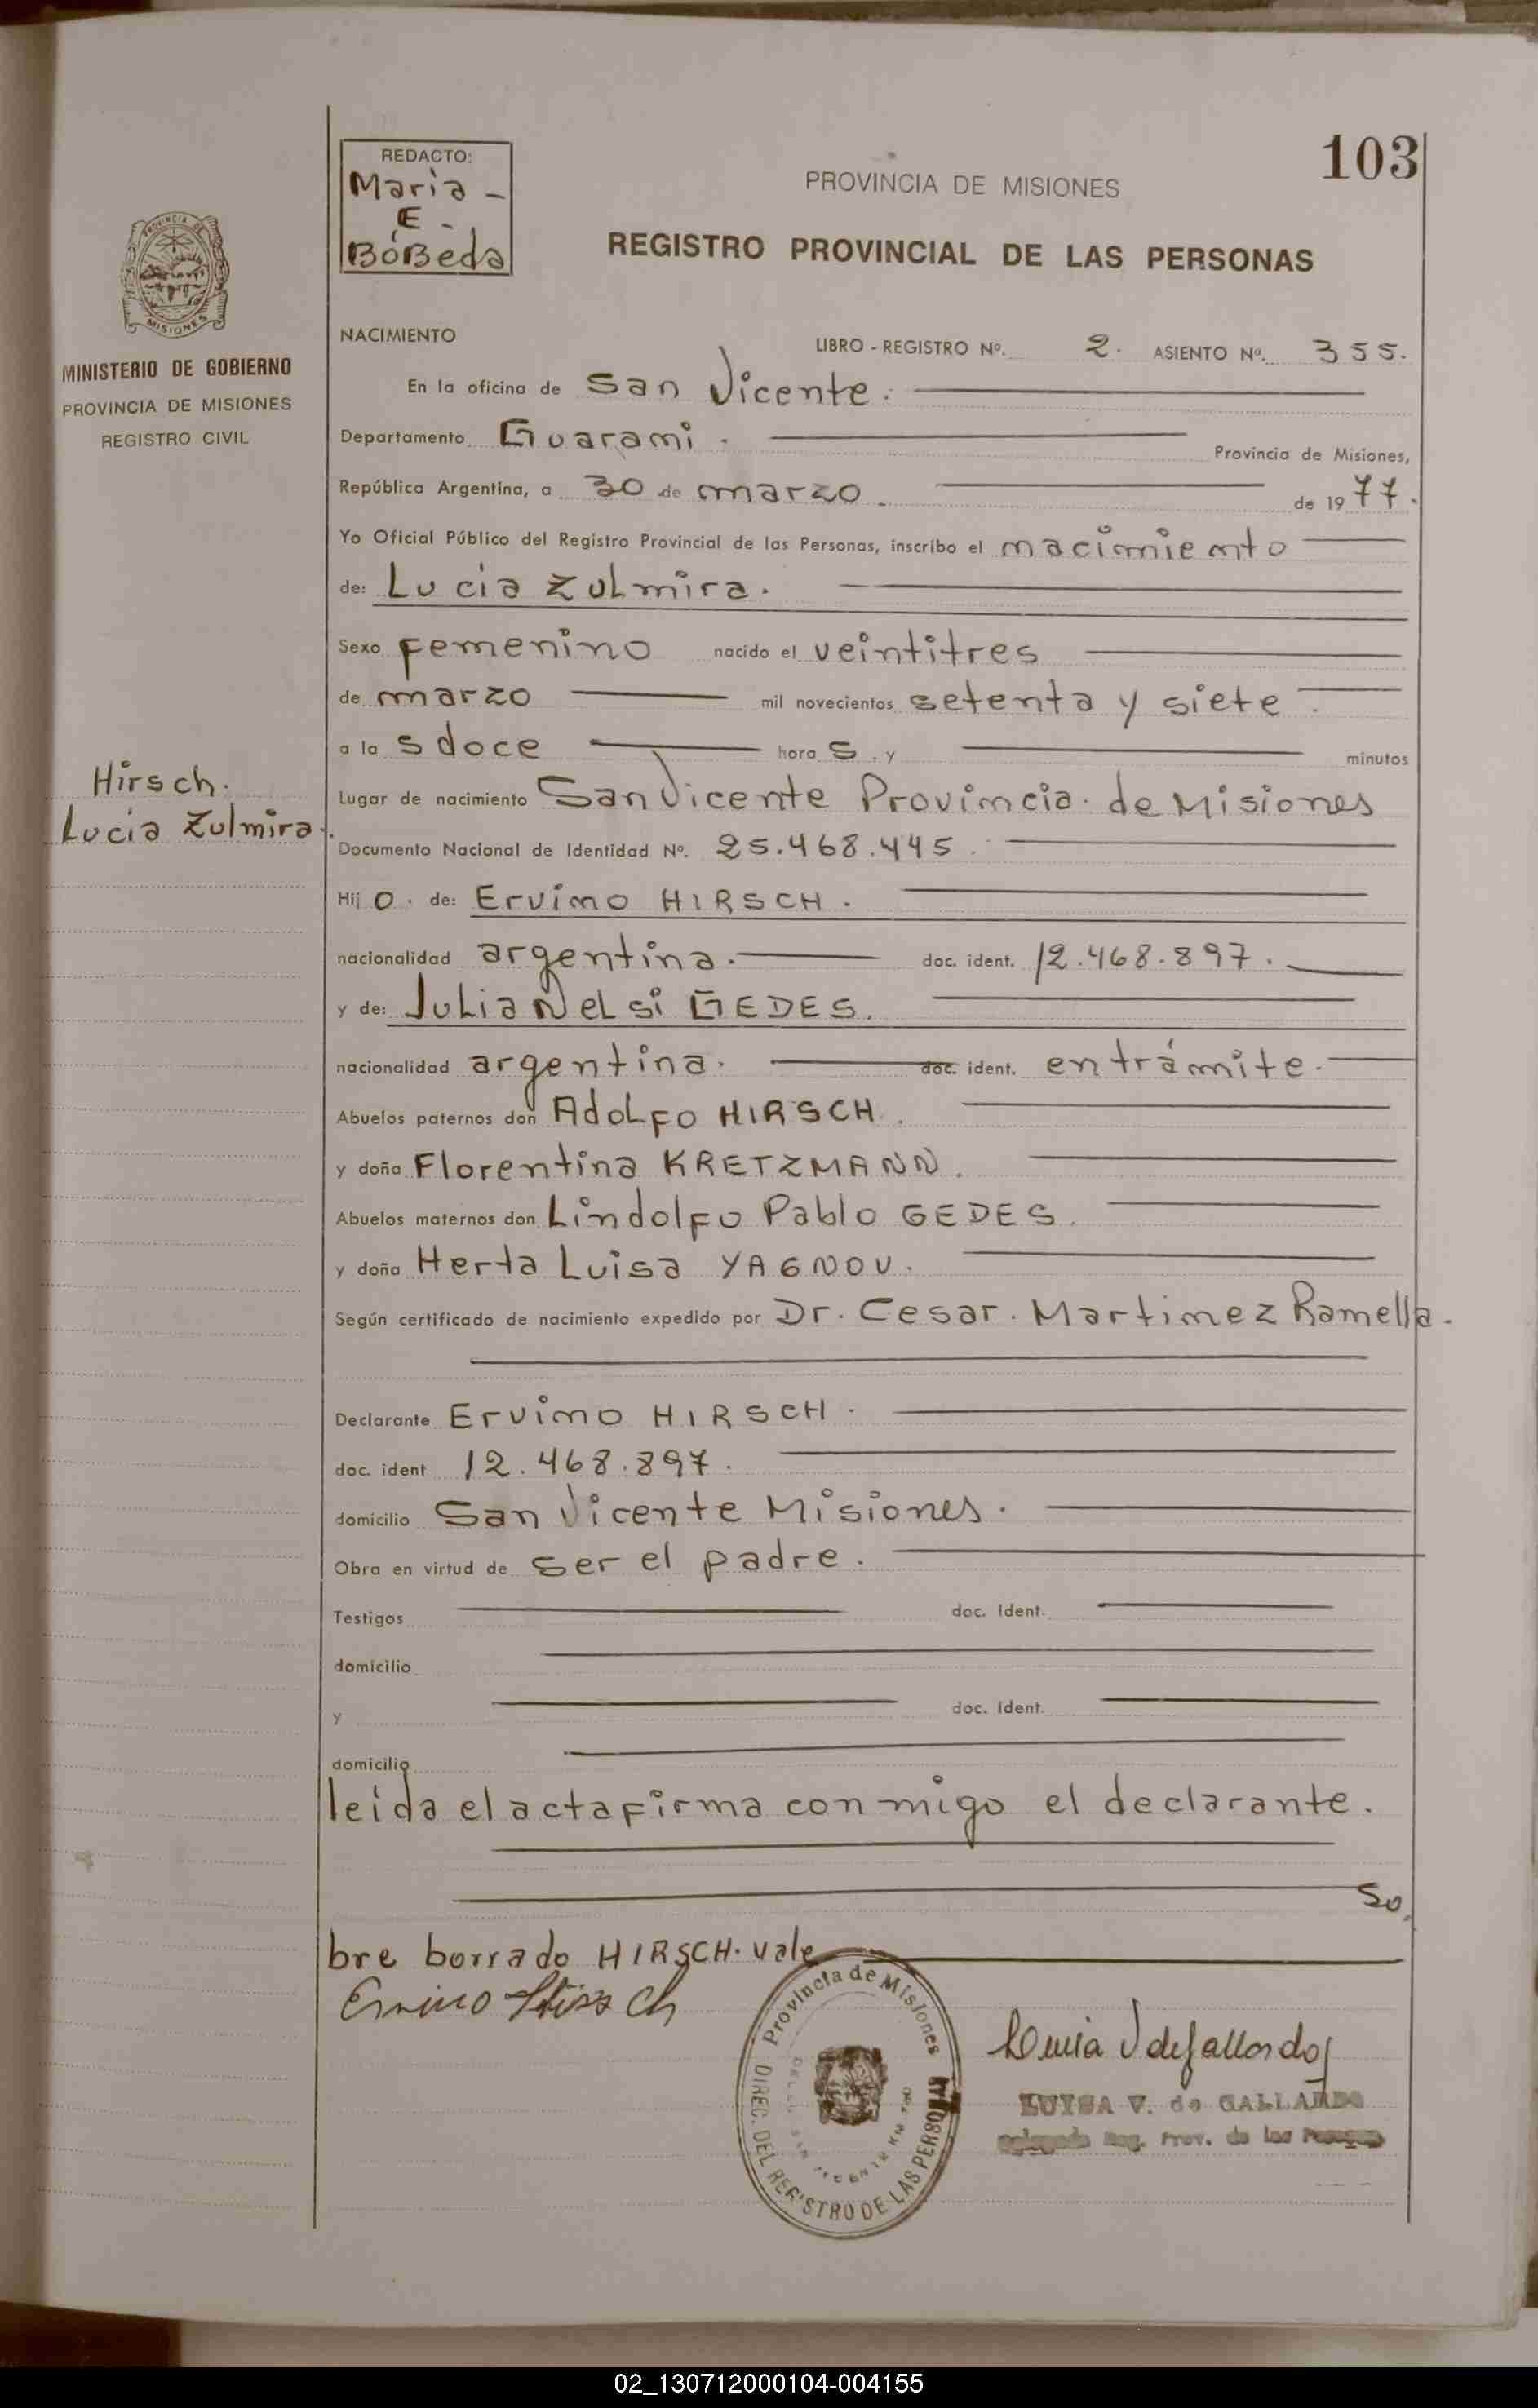 103
REDACTO:
Maria -
E -
BóBeda
PROVINCIA DE MISIONES
REGISTRO PROVINCIAL DE LAS PERSONAS
PROVINCIA DE
MISIONES
MINISTERIO DE GOBIERNO
PROVINCIA DE MISIONES
REGISTRO CIVIL
NACIMIENTO LIBRO - REGISTRO Nº. 2. ASIENTO Nº. 355.
En la oficina de San Vicente.
Departamento Guarami. Provincia de Misiones,
República Argentina, a 30 de marzo de 1977.
Yo Oficial Público del Registro Provincial de las Personas, inscribo el macimiento
de: Lucia Zulmira.
Sexo femenino nacido el veintitres
de marzo mil novecientos setenta y siete.
a la s doce hora s. y minutos
Hirsch.
Lucia Zulmira.
Lugar de nacimiento San Vicente Provimcia. de Misiones
Documento Nacional de Identidad Nº. 25.468.445.
Hij o. de: Ervimo HIRSCH.
nacionalidad argentina. doc. ident. 12.468.897.
y de: Julia Nelsi GEDES.
nacionalidad argentina. doc. ident. en trámite.
Abuelos paternos don Adolfo HIRSCH.
y doña Florentina KRETZMANN.
Abuelos maternos don Lindolfo Pablo GEDES.
y doña Herta Luisa YAGNOU.
Según certificado de nacimiento expedido por Dr. Cesar. Martimez Ramella.
Declarante Ervimo HIRSCH.
doc. ident 12.468.897.
domicilio San Vicente Misiones.
Obra en virtud de ser el padre.
Testigos doc. Ident.
domicilio
y doc. Ident.
domicilio
leida el acta firma conmigo el declarante.
So
bre borrado HIRSCH. vale
Ervino Hirsch
Provincia de Misiones
DIREC. DEL REGISTRO DE LAS PERSONAS
LUISA V. de GALLARDO
Reg. Prov. de las
02_130712000104-004155